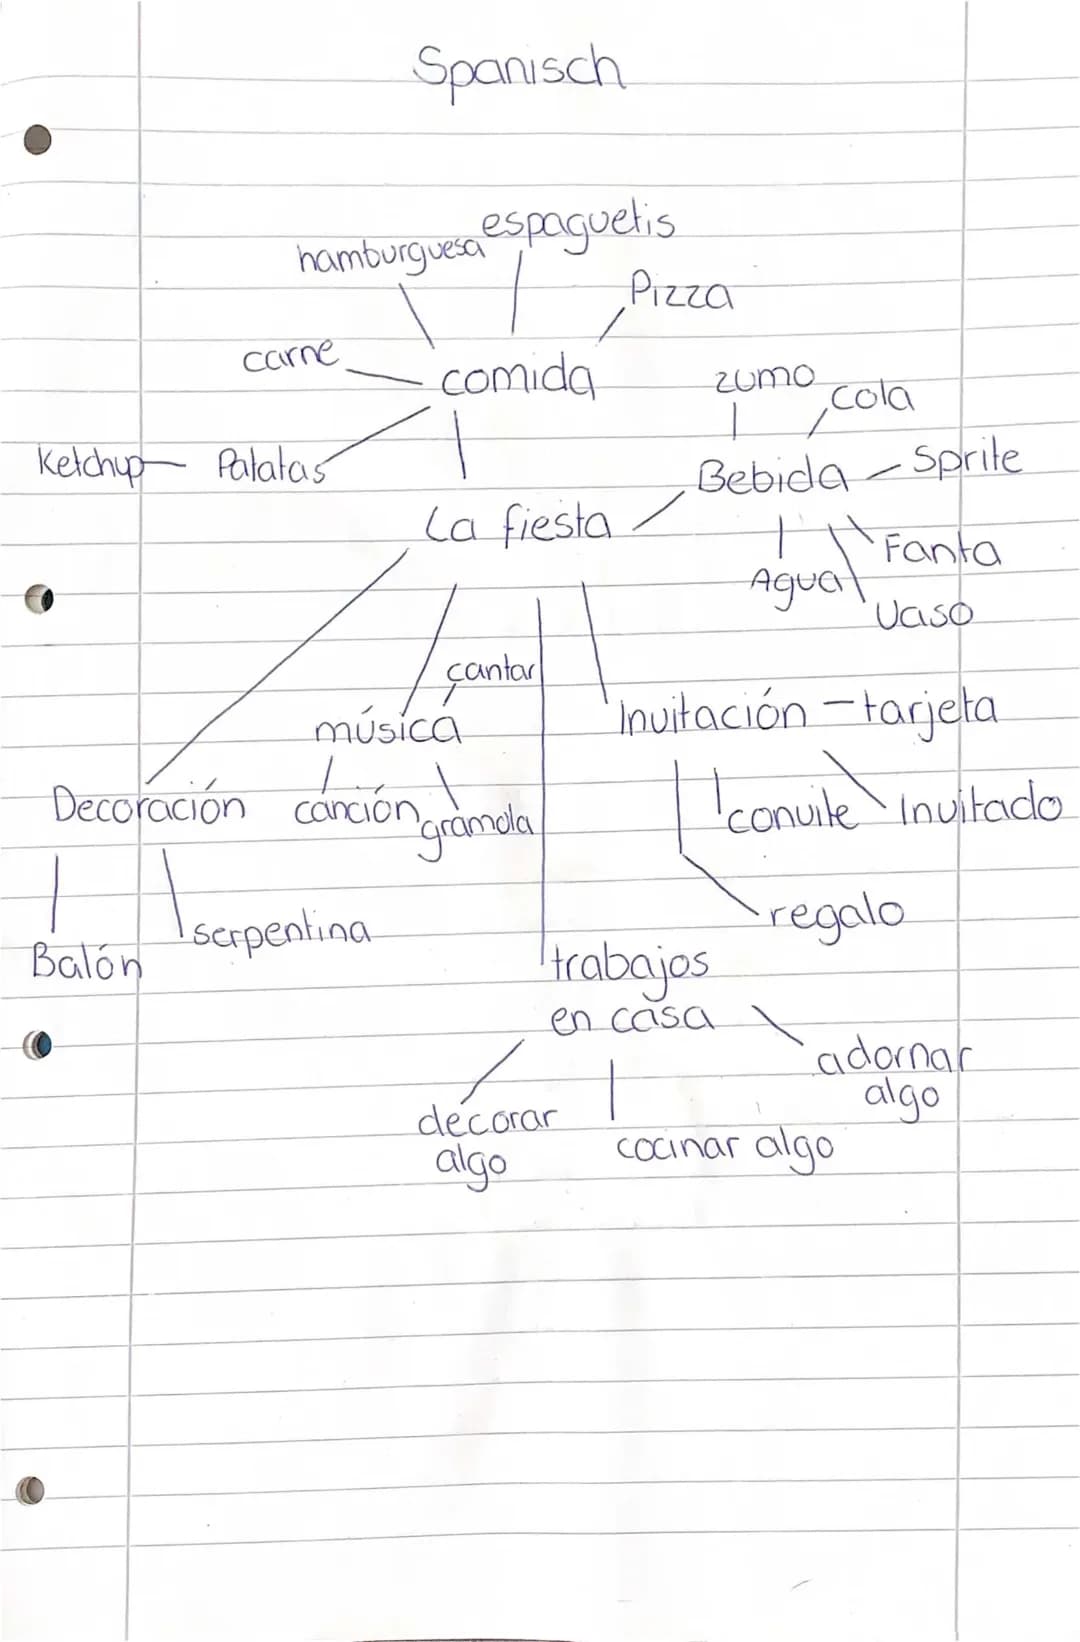 Spanisch
espaguetis
hamburguesa
Pizza
carne
comida
zumo
cola
Ketchup Patatas
Bebida Sprite
La fiesta
Fanta
Agua
Vaso
cantar
Invitación - tarjeta
música
Decoración canción gramola
convite Invitado
regalo
serpentina
Balón
trabajos
en casa
adornar
algo
decorar
algo
cocinar algo